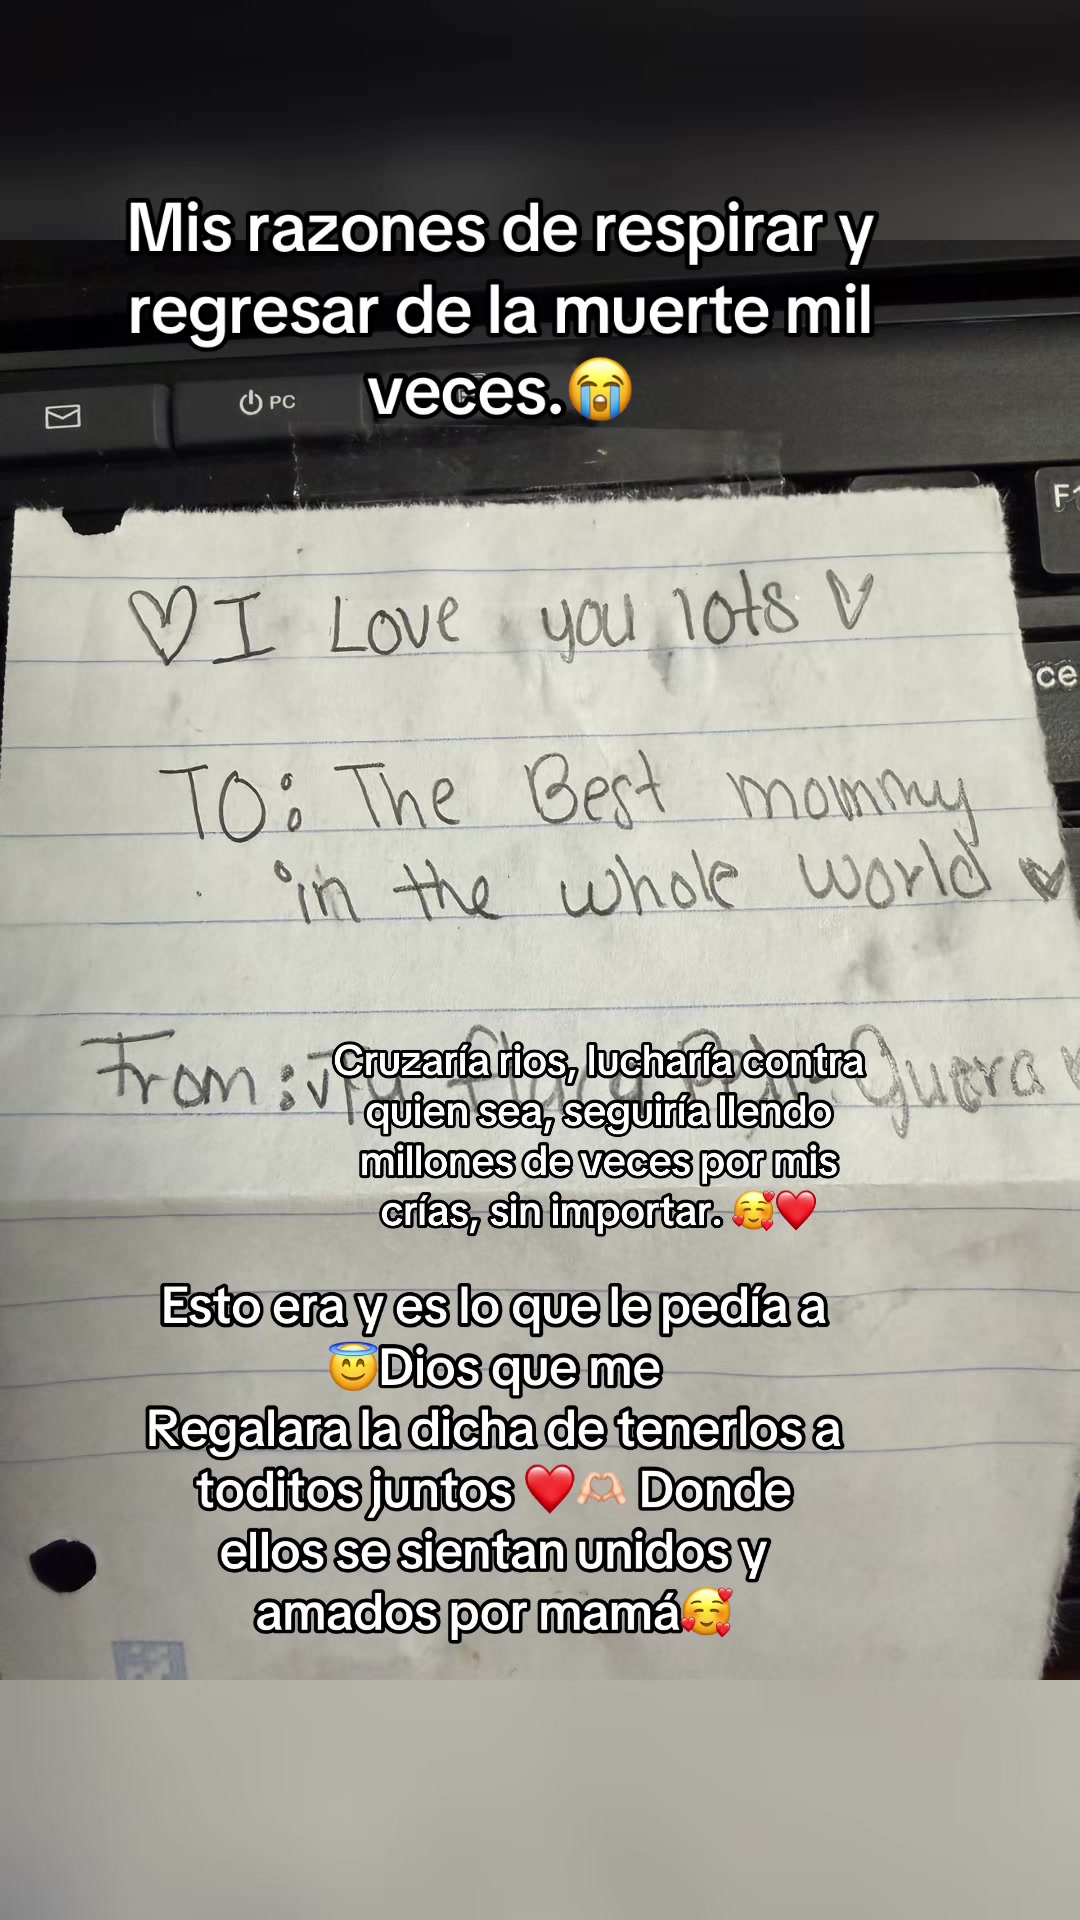 Mis razones de respirar y
regresar de la muerte mil
veces.😭
PC
F1
♡ I Love you lots ♡
ce
TO: The Best mommy
in the whole world ♥
From: Tu flaca Güera
Cruzaría rios, lucharía contra
quien sea, seguiría llendo
millones de veces por mis
crías, sin importar. 🥰❤️
Esto era y es lo que le pedía a
😇Dios que me
Regalara la dicha de tenerlos a
toditos juntos ❤️🫶🏻 Donde
ellos se sientan unidos y
amados por mamá🥰